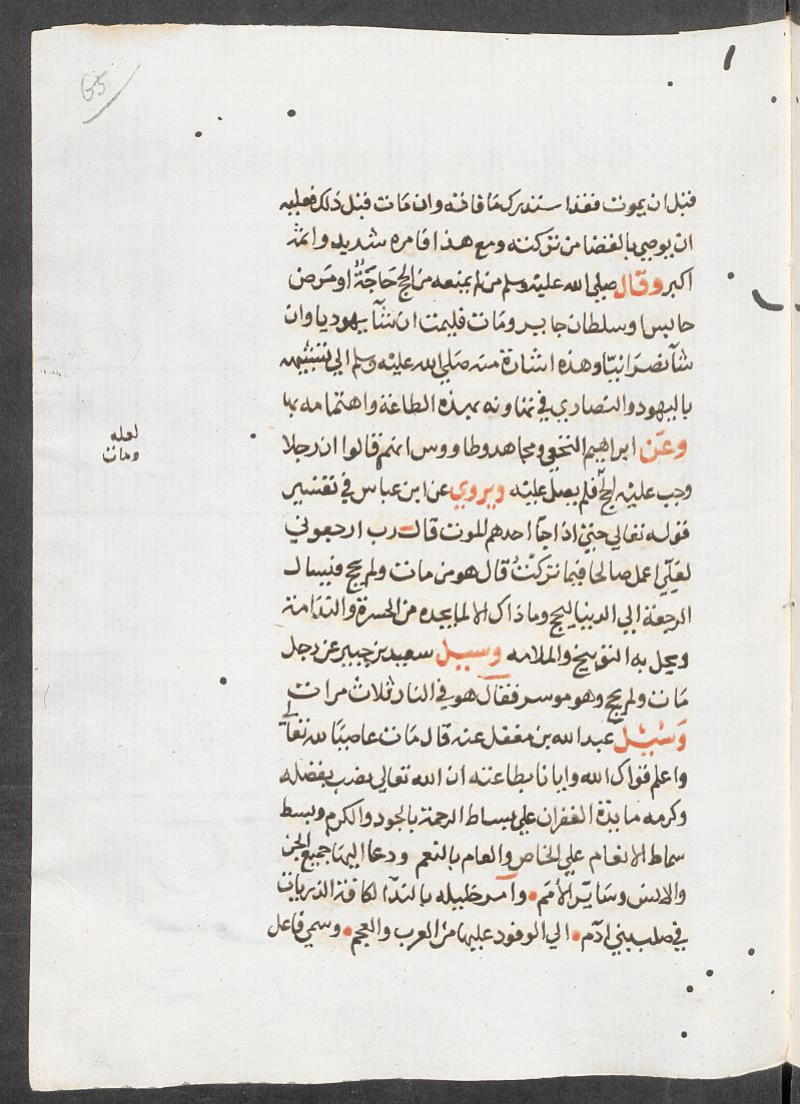 65
قبل ان يموت فقد استدرك مافاته وان مات قبل ذلك فعليه
ان يوصي بالقضا من تركته ومع هذا فامره شديد واثمه
اكبر وقال صلي الله عليه وسلم من لم يمنعه من الحج حَاجَةٌ او مَرض
حابس او سلطان جاير ومَات فليمت ان شآ يهوديا وان
شآ نصرَانيّا وهذه اشارة منه صَلي الله عليه وسلم الي تشبيهه
باليهود والنصاري في تهاونه بهذه الطاعة واهتمامه بها
وعَن ابراهيم النخعي ومجاهد وطاووس انهم قالوا ان رجلا
وجب عليْه الحج فلم يصل عليْه ويروي عن ابن عباس في تفسير
قوله تعالي حتي اذا جآ احدهم الموت قال رب ارجعوني
لعَلّي اعمل صالحا فيما تركتُ قال هو من مات ولم يحج فيسال
الرجعة الي الدنيا ليحج وما ذاك الا لما يجده من الحسرة والندامة
ويحل به التوبيخ والملامه وسيل سعيد بن جبير عن رجل
مَات ولم يحج وهو موسر فقال هو في النار ثلاث مرات
وَسُئِل عبد الله بن مغفل عنه قال مَات عاصيًا لله تعالي
واعلم قواك الله وايانا بطاعته ان الله تعالي نصب بفضله
وكرمه مايدة الغفران علي بساط الرحمة بالجود والكرم وبسط
سماط الانعام علي الخاص والعام بالنعم ودعا اليها جميع الجن
والانس وسَاير الأمَم وامر خليله بالندآ لكافة الذريات
في صلب بني ادم الي الوفود عليها من العرب والعجم وسمي فاعل
لعله
ومات